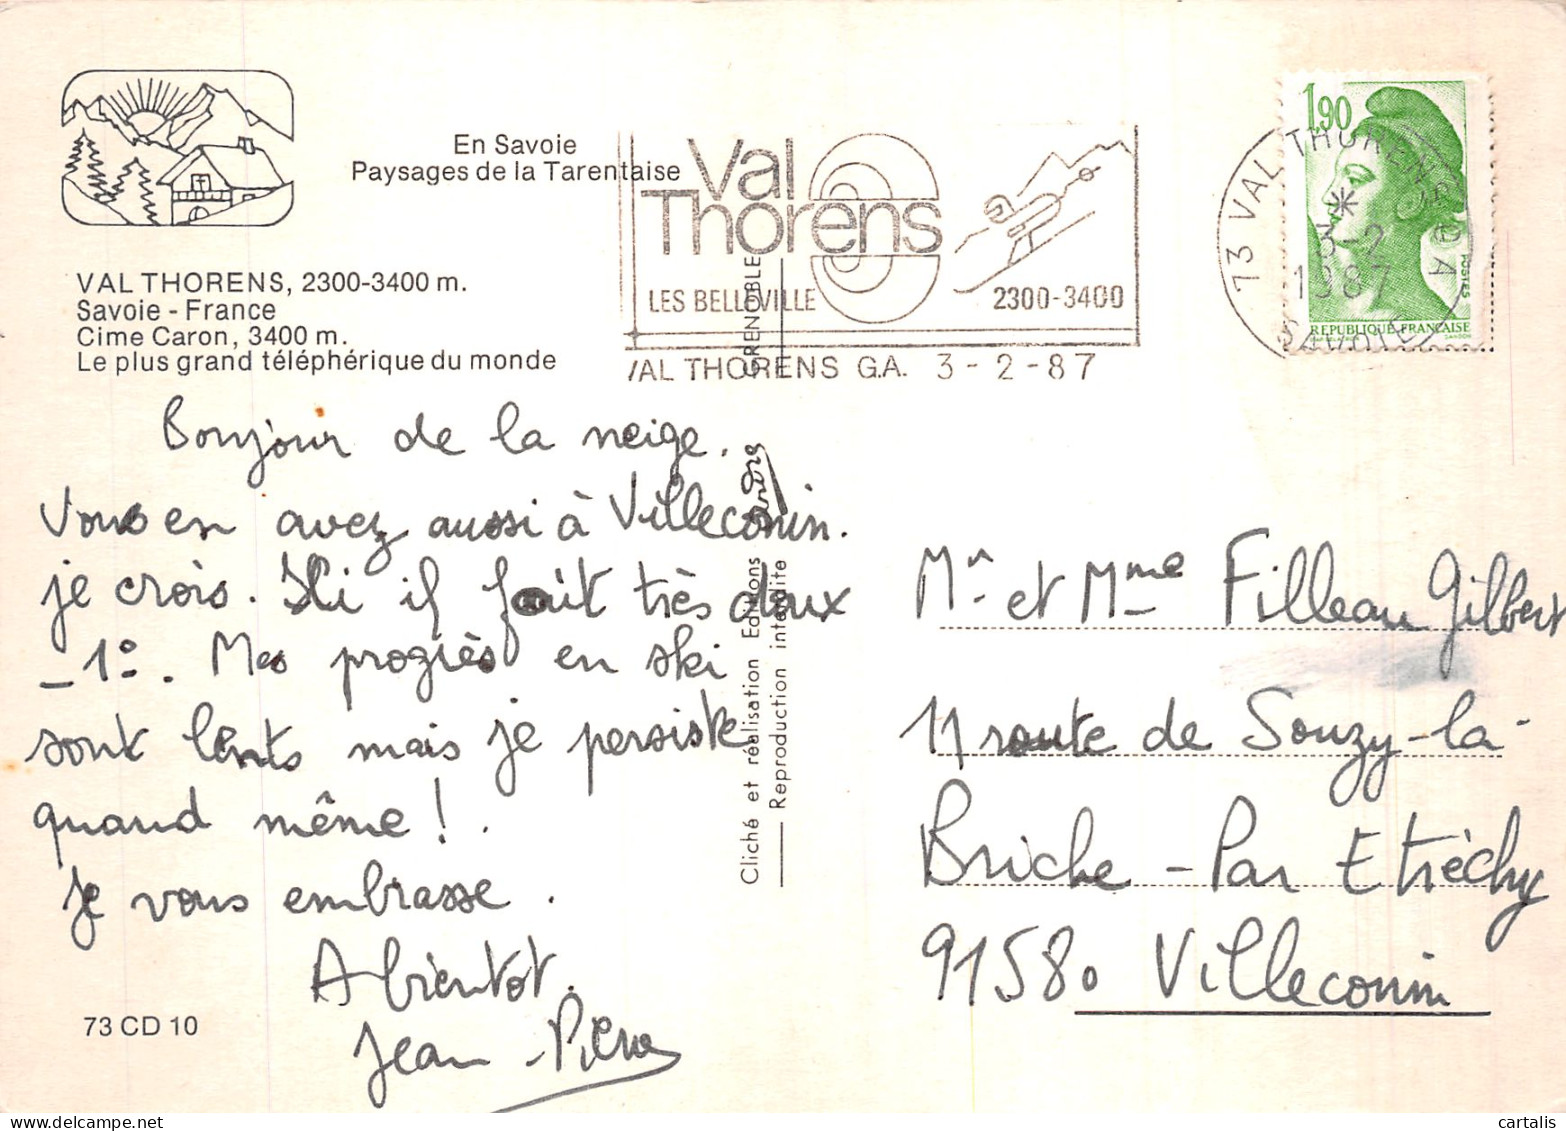 En Savoie
Paysages de la Tarentaise
VAL THORENS, 2300-3400 m.
Savoie - France
Cime Caron, 3400 m.
Le plus grand téléphérique du monde
Val
Thorens
LES BELLEVILLE 2300-3400
VAL THORENS G.A. 3 - 2 - 87
1,90
POSTES
REPUBLIQUE FRANÇAISE
73 VAL THORENS G A
*
3-2
1987
SAVOIE
Bonjour de la neige.
Vous en avez aussi à Villeconin.
je crois. Ici il fait très doux
-1°. Mes progrès en ski
sont lents mais je persiste
quand même !.
Je vous embrasse.
A bientôt.
Jean-Pierre
73 CD 10
GRENOBLE
Cliché et réalisation Editions
Reproduction interdite
Mr et Mme Filleau Gilbert
11 route de Souzy-la-
Briche - Par Etréchy
91580 Villeconin
cartalis